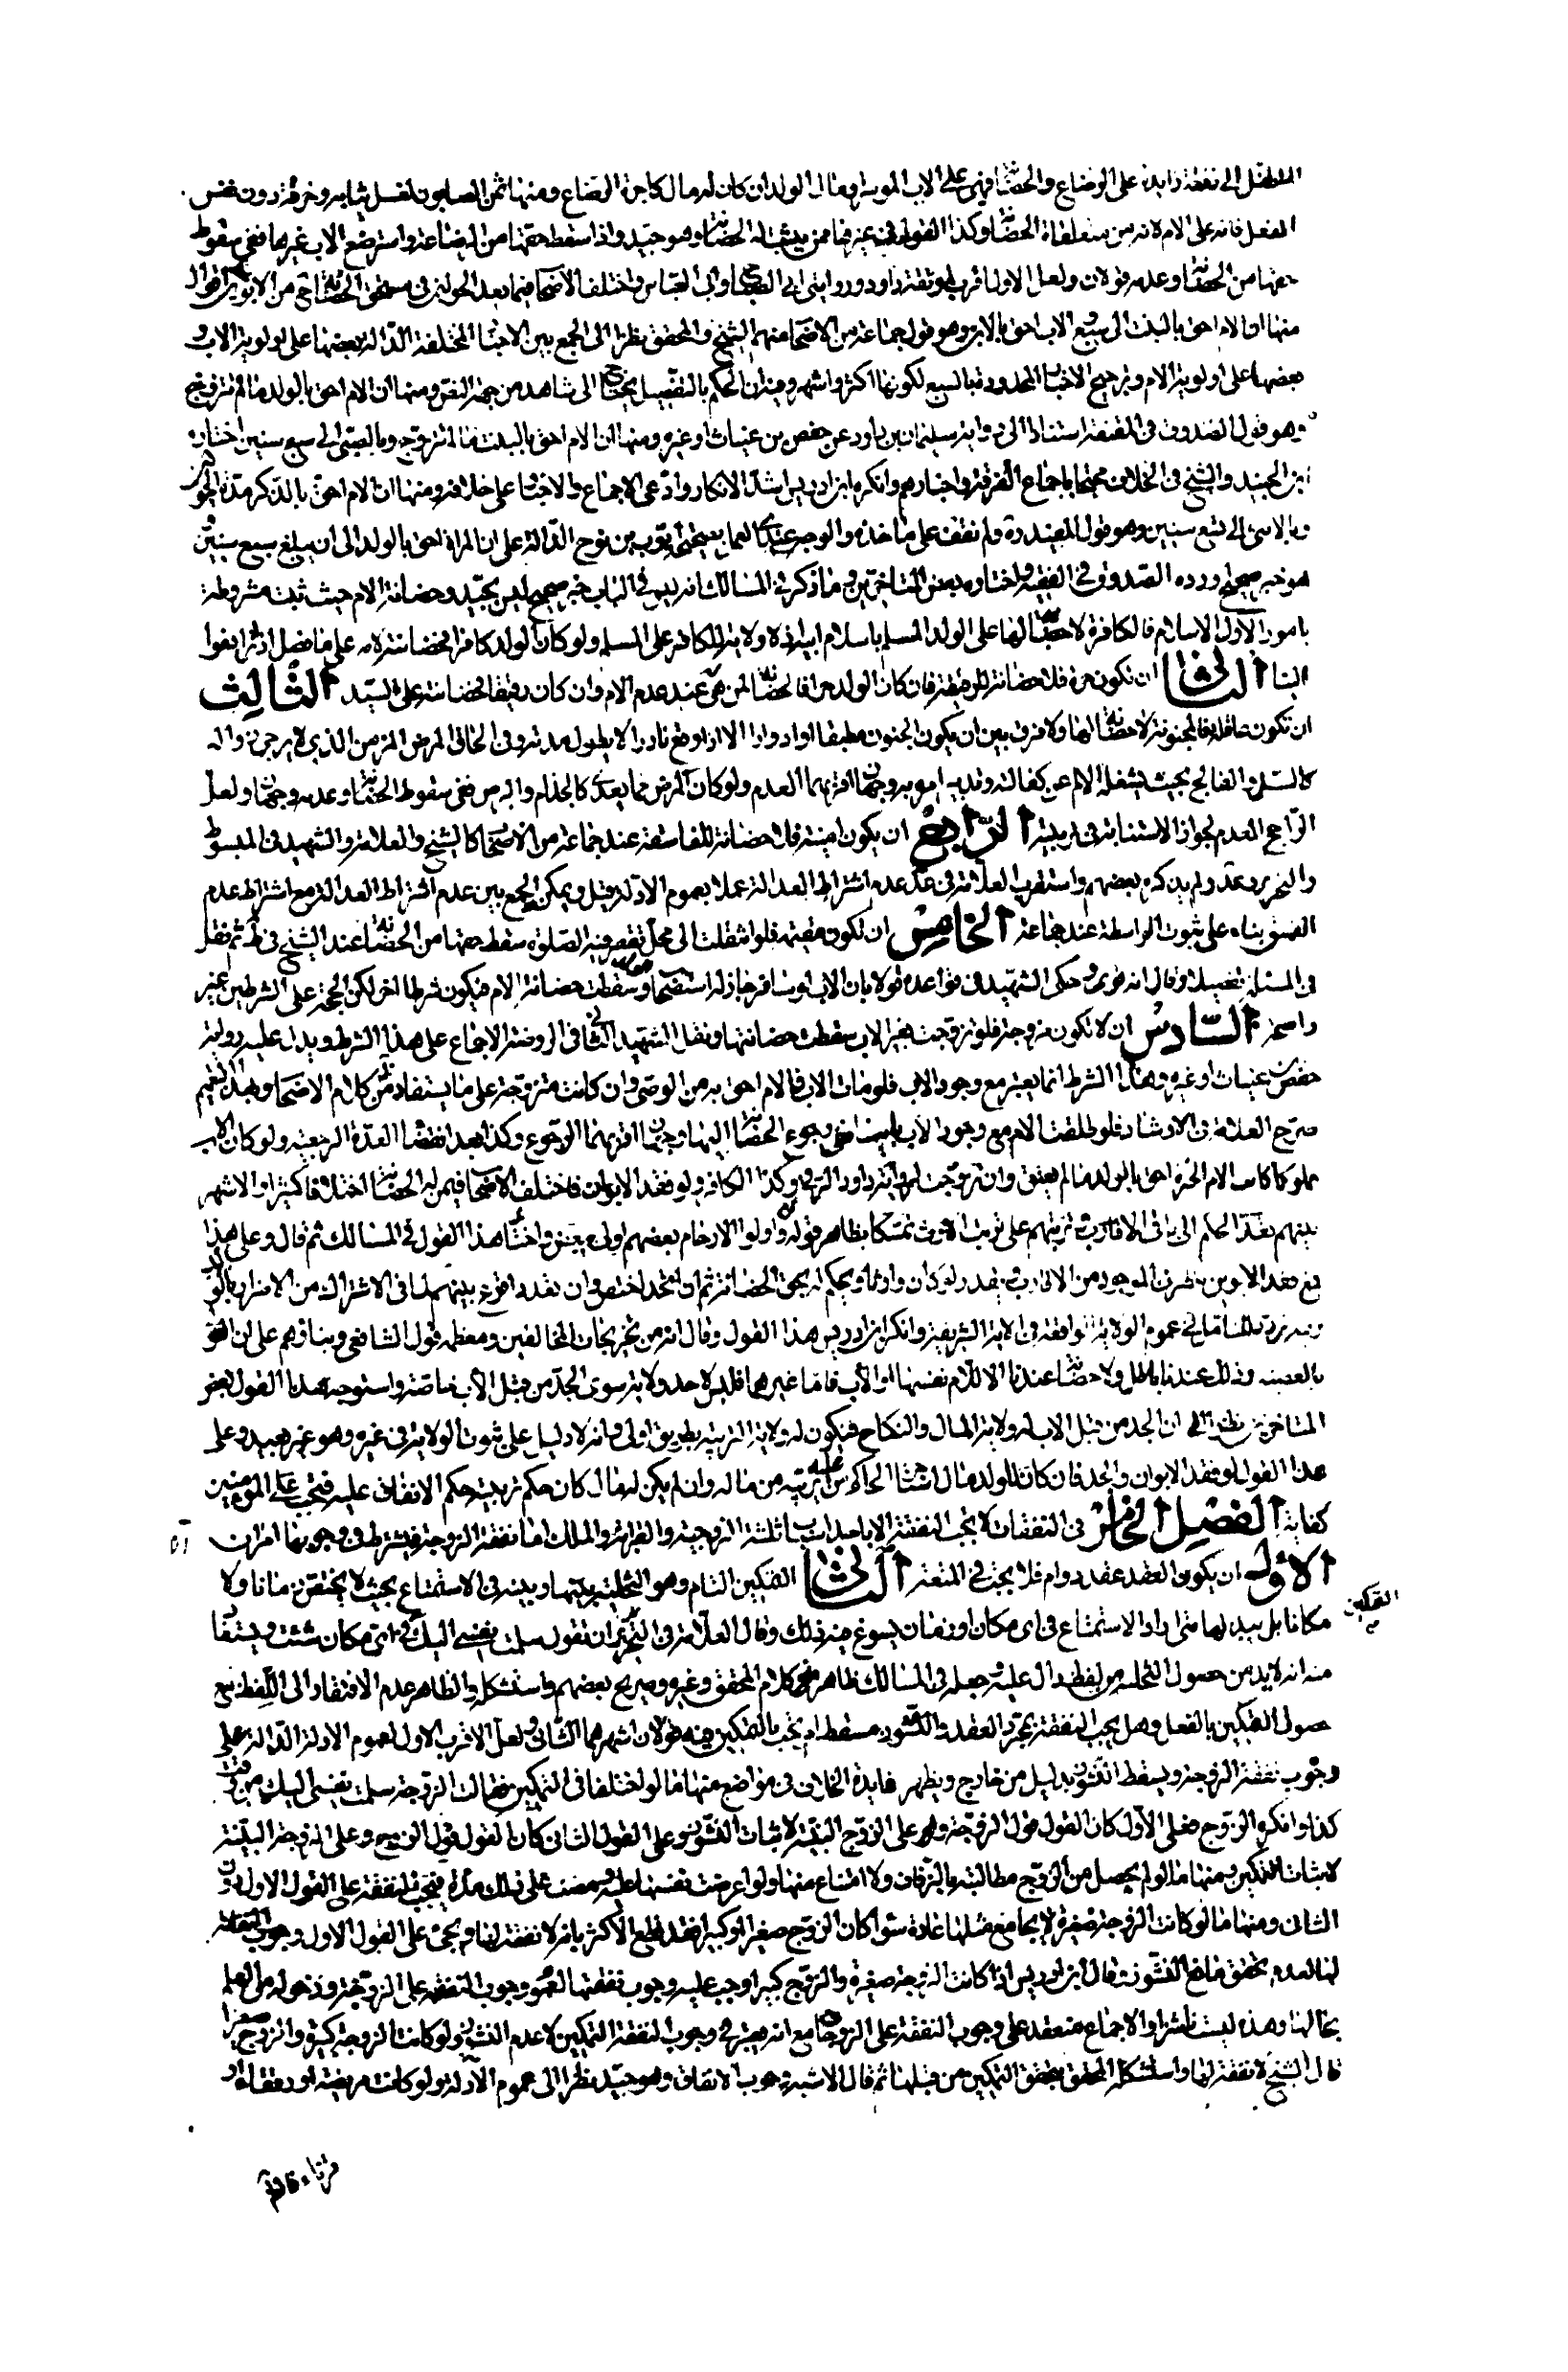 الطفل الى نفقة زايدة على الرضاع والحضانة فهى على الاب الموسر او مال الولد ان كان له مال كاجرة الرضاع ومنها ثمن الصابون لغسل ثيابه وخرقه دون نفس
الفعل فانه على الام لانه من متعلقات الحضانة وكذا القول فى غيرها ممن يثبت له الحضانة وهو جيد واذا اسقط حقها من الرضاعة واسترضع الاب غيرها ففى سقوط
حقها من الحضانة وعدمه قولان ولعل الاول اقرب لموثقة داود وروايتى ابى الصباح وابى العباس واختلف الاصحاب فيما بعد الحولين فى مستحق الحضانة من الابوين على اقوال
منها ان الام احق بالبنت الى سبع والاب احق بالابن وهو قول جماعة من الاصحاب منهم الشيخ والمحقق نظرا الى الجمع بين الاخبار المختلفة الدالة بعضها على اولوية الاب و
بعضها على اولوية الام وترجيح الاخبار المحدودة بالسبع لكونها اكثر واشهر وفيه ان الحكم بالتفصيل يحتاج الى شاهد من جهة النص ومنها ان الام احق بالولد ما لم تتزوج
وهو قول الصدوق فى المقنع استنادا الى رواية سليمان بن داود عن حفص بن غياث او غيره ومنها ان الام احق بالبنت ما لم تتزوج وبالصبى الى سبع سنين اختاره
ابن الجنيد والشيخ فى الخلاف محتجا باجماع الفرقة واخبارهم وانكره ابن ادريس اشد الانكار وادعى الاجماع والاخبار على خلافه ومنها ان الام احق بالذكر مدة الحولين
وبالانثى الى تسع سنين وهو قول المفيد ره ولم نقف على ماخذه والوجه عندى العمل بصحيحة ايوب بن نوح الدالة على ان المراة احق بالولد الى ان يبلغ سبع سنين و
هو خبر صحيح اورده الصدوق فى الفقيه واختاره بعض المتاخرين وما ذكر فى المسالك انه ليس فى الباب خبر صحيح ليس بجيد وحضانة الام حيث ثبت مشروطة
بامور الاول الاسلام فالكافرة لا حضانة لها على الولد المسلم باسلام ابيه اذ لا ولاية للكافر على المسلم ولو كان الولد كافرا فحضانته لامه على ما فصل اذا ترافعوا
الينا الثانى ان تكون حرة فلا حضانة للرقيقة فان كان الولد حرا فالحضانة لمن هى عند عدم الام وان كان رقيقا فحضانته على السيد الثالث
ان تكون عاقلة فالمجنونة لا حضانة لها ولا فرق بين ان يكون الجنون مطبقا او ادوارا الا اذا وقع نادرا لا يطول مدته وفى الحاق المرض المزمن الذى لا يرجى زواله
كالسل والفالج بحيث يشغله الالم عن كفالته وتدبير اموره وجهان اقربهما العدم ولو كان المرض مما يعدى كالجذام والبرص ففى سقوط الحضانة وعدمه وجهان ولعل
الراجح العدم لجواز الاستنابة فى تربيته الرابع ان يكون امينة فلا حضانة للفاسقة عند جماعة من الاصحاب كالشيخ والعلامة والشهيد فى المبسوط
والتحرير وعد ولم يذكره بعضهم واستقرب العلامة فى عد عدم اشتراط العدالة عملا بعموم الادلة قيل ويمكن الجمع بين عدم اشتراط العدالة مع اشتراط عدم
الفسق بناء على ثبوت الواسطة عند جماعة الخامس ان تكون مقيمة فلو انتقلت الى محل تقصر فيه الصلوة سقط حقها من الحضانة عند الشيخ فى ط ثم نقل
فى المسئلة تفصيلا وقال انه قوى وحكى الشهيد فى قواعده قولا بان الاب لو سافر جاز له استصحاب وسقطت حضانة الام فيكون شرطا اخر لكن الحجة على الشرطين غير
واضحة السادس ان لا تكون مزوجة فلو تزوجت بغير الاب سقطت حضانتها ونقل الشهيد الثانى فى الروضة الاجماع على هذا الشرط ويدل عليه رواية
حفص بن غياث او غيره وهذا الشرط انما يعتبر مع وجود الاب فلو مات الاب فالام احق به من الوصى وان كانت متزوجة على ما يستفاد من كلام الاصحاب وبهذا التعميم
صرح العلامة فى الارشاد فلو طلقت الام مع وجود الاب باينا ففى رجوع الحضانة اليها وجهان اقربهما الرجوع وكذا بعد انقضاء العدة الرجعية ولو كان الاب
مملوكا كانت الام الحرة احق بالولد ما لم يعتق وان تزوجت لرواية داود الرقى وكذا الكافر ولو فقد الابوان فاختلف الاصحاب فيمن له الحضانة اختلافا كثيرا والاشهر
بينهم تعدى الحكم الى باقى الاقارب وترتبهم على ترتيب الارث تمسكا بظاهر قوله تعالى واولوا الارحام بعضهم اولى ببعض واختار هذا القول فى المسالك ثم قال وعلى هذا
فمع فقد الابوين ينظر فى الموجود من الاقارب ويقدر لو كان وارثا ويحكم له بحق الحضانة ثم ان اتحد اختص وان تعدد اقرع بينهم لما فى الاشتراك من الاضرار بالولد
وفيه تردد للتامل فى عموم الولاية الواقعة فى الاية الشريفة وانكر ابن ادريس هذا القول وقال انه من تخريجات المخالفين ومعظمه قول الشافعى وبناؤهم على ان القول
بالعصبة وذلك عندنا باطل ولا حضانة عندنا الا للام نفسها او الاب فاما غيرهما فليس لاحد ولاية سوى الجد من قبل الاب خاصة واستوجه هذا القول بعض
المتاخرين نظرا الى ان الجد من قبل الاب له ولاية المال والنكاح فيكون له ولاية التربية بطريق اولى وانه لا دليل على ثبوت الولاية فى غيره وهو غير بعيد وعلى
هذا القول لو فقد الابوان والجد فان كان للولد مال استاجر الحاكم من يربيه من ماله وان لم يكن له مال كان حكم تربيته حكم الانفاق عليه فتجب على المؤمنين
كفاية الفصل الخامس فى النفقات لا تجب النفقة الا باحد اسباب ثلثة الزوجية والقرابة والملك اما نفقة الزوجة فيشترط فى وجوبها امران
الاول ان يكون العقد عقد دوام فلا يجب فى المتعة الثانى التمكين التام وهو التخلية بينها وبينه فى الاستمتاع بحيث لا يختص زمانا ولا
التمكين
مكانا بل يبذل لها متى اراد الاستمتاع فى اى مكان او زمان يسوغ فيه ذلك وقال العلامة فى التحرير ان تقول سلمت نفسى اليك فى اى مكان شئت ويستفاد
منه انه لا بد من حصول التخلية من لفظ دال عليه وجعله فى المسالك ظاهر كلام المحقق وغيره وصريح بعضهم واستشكله والظاهر عدم الافتقار الى اللفظ مع
حصول التمكين بالفعل وهل يجب النفقة بمجرد العقد والنشوز مسقط ام يجب بالتمكين فيه قولان اشهرهما الثانى ولعل الاقرب الاول لعموم الادلة الدالة على
وجوب نفقة الزوجة ويسقط النشوز بدليل من خارج ويظهر فايدة الخلاف فى مواضع منها ما لو اختلفا فى التمكين فقالت الزوجة سلمت نفسى اليك من وقت
كذا وانكره الزوج فعلى الاول كان القول قول الزوجة وعلى الزوج البينة لاثبات النشوز وعلى القول الثانى كان القول قول الزوج وعلى الزوجة البينة
لاثبات التمكين ومنها ما لو لم يحصل من الزوج مطالبته بالزفاف ولا امتناع منها ولو اعرضت نفسها عليه ومضت على ذلك مدة فيجب النفقة على القول الاول دون
الثانى ومنها ما لو كانت الزوجة صغيرة لا يجامع مثلها عادة سواء كان الزوج صغيرا او كبيرا فقد قطع الاكثر بانه لا نفقة لها ويجئ على القول الاول وجوب النفقة
لها لعدم تحقق مانع النشوز وقال ابن ادريس اذا كانت الزوجة صغيرة والزوج كبيرا وجب عليه وجوب نفقتها لعموم وجوب النفقة على الزوجة ودخوله مع العلم
بحالها وهذه ليست ناشزا والاجماع منعقد على وجوب النفقة على الزوجات مع انه يعتبر فى وجوب النفقة التمكين لا عدم النشوز ولو كانت الزوجة كبيرة والزوج صغيرا
قال الشيخ لا نفقة لها واستشكله المحقق بتحقق التمكين من قبلها ثم قال الاشبه وجوب الانفاق وهو جيد نظرا الى عموم الادلة ولو كانت مريضة او رتقاء او